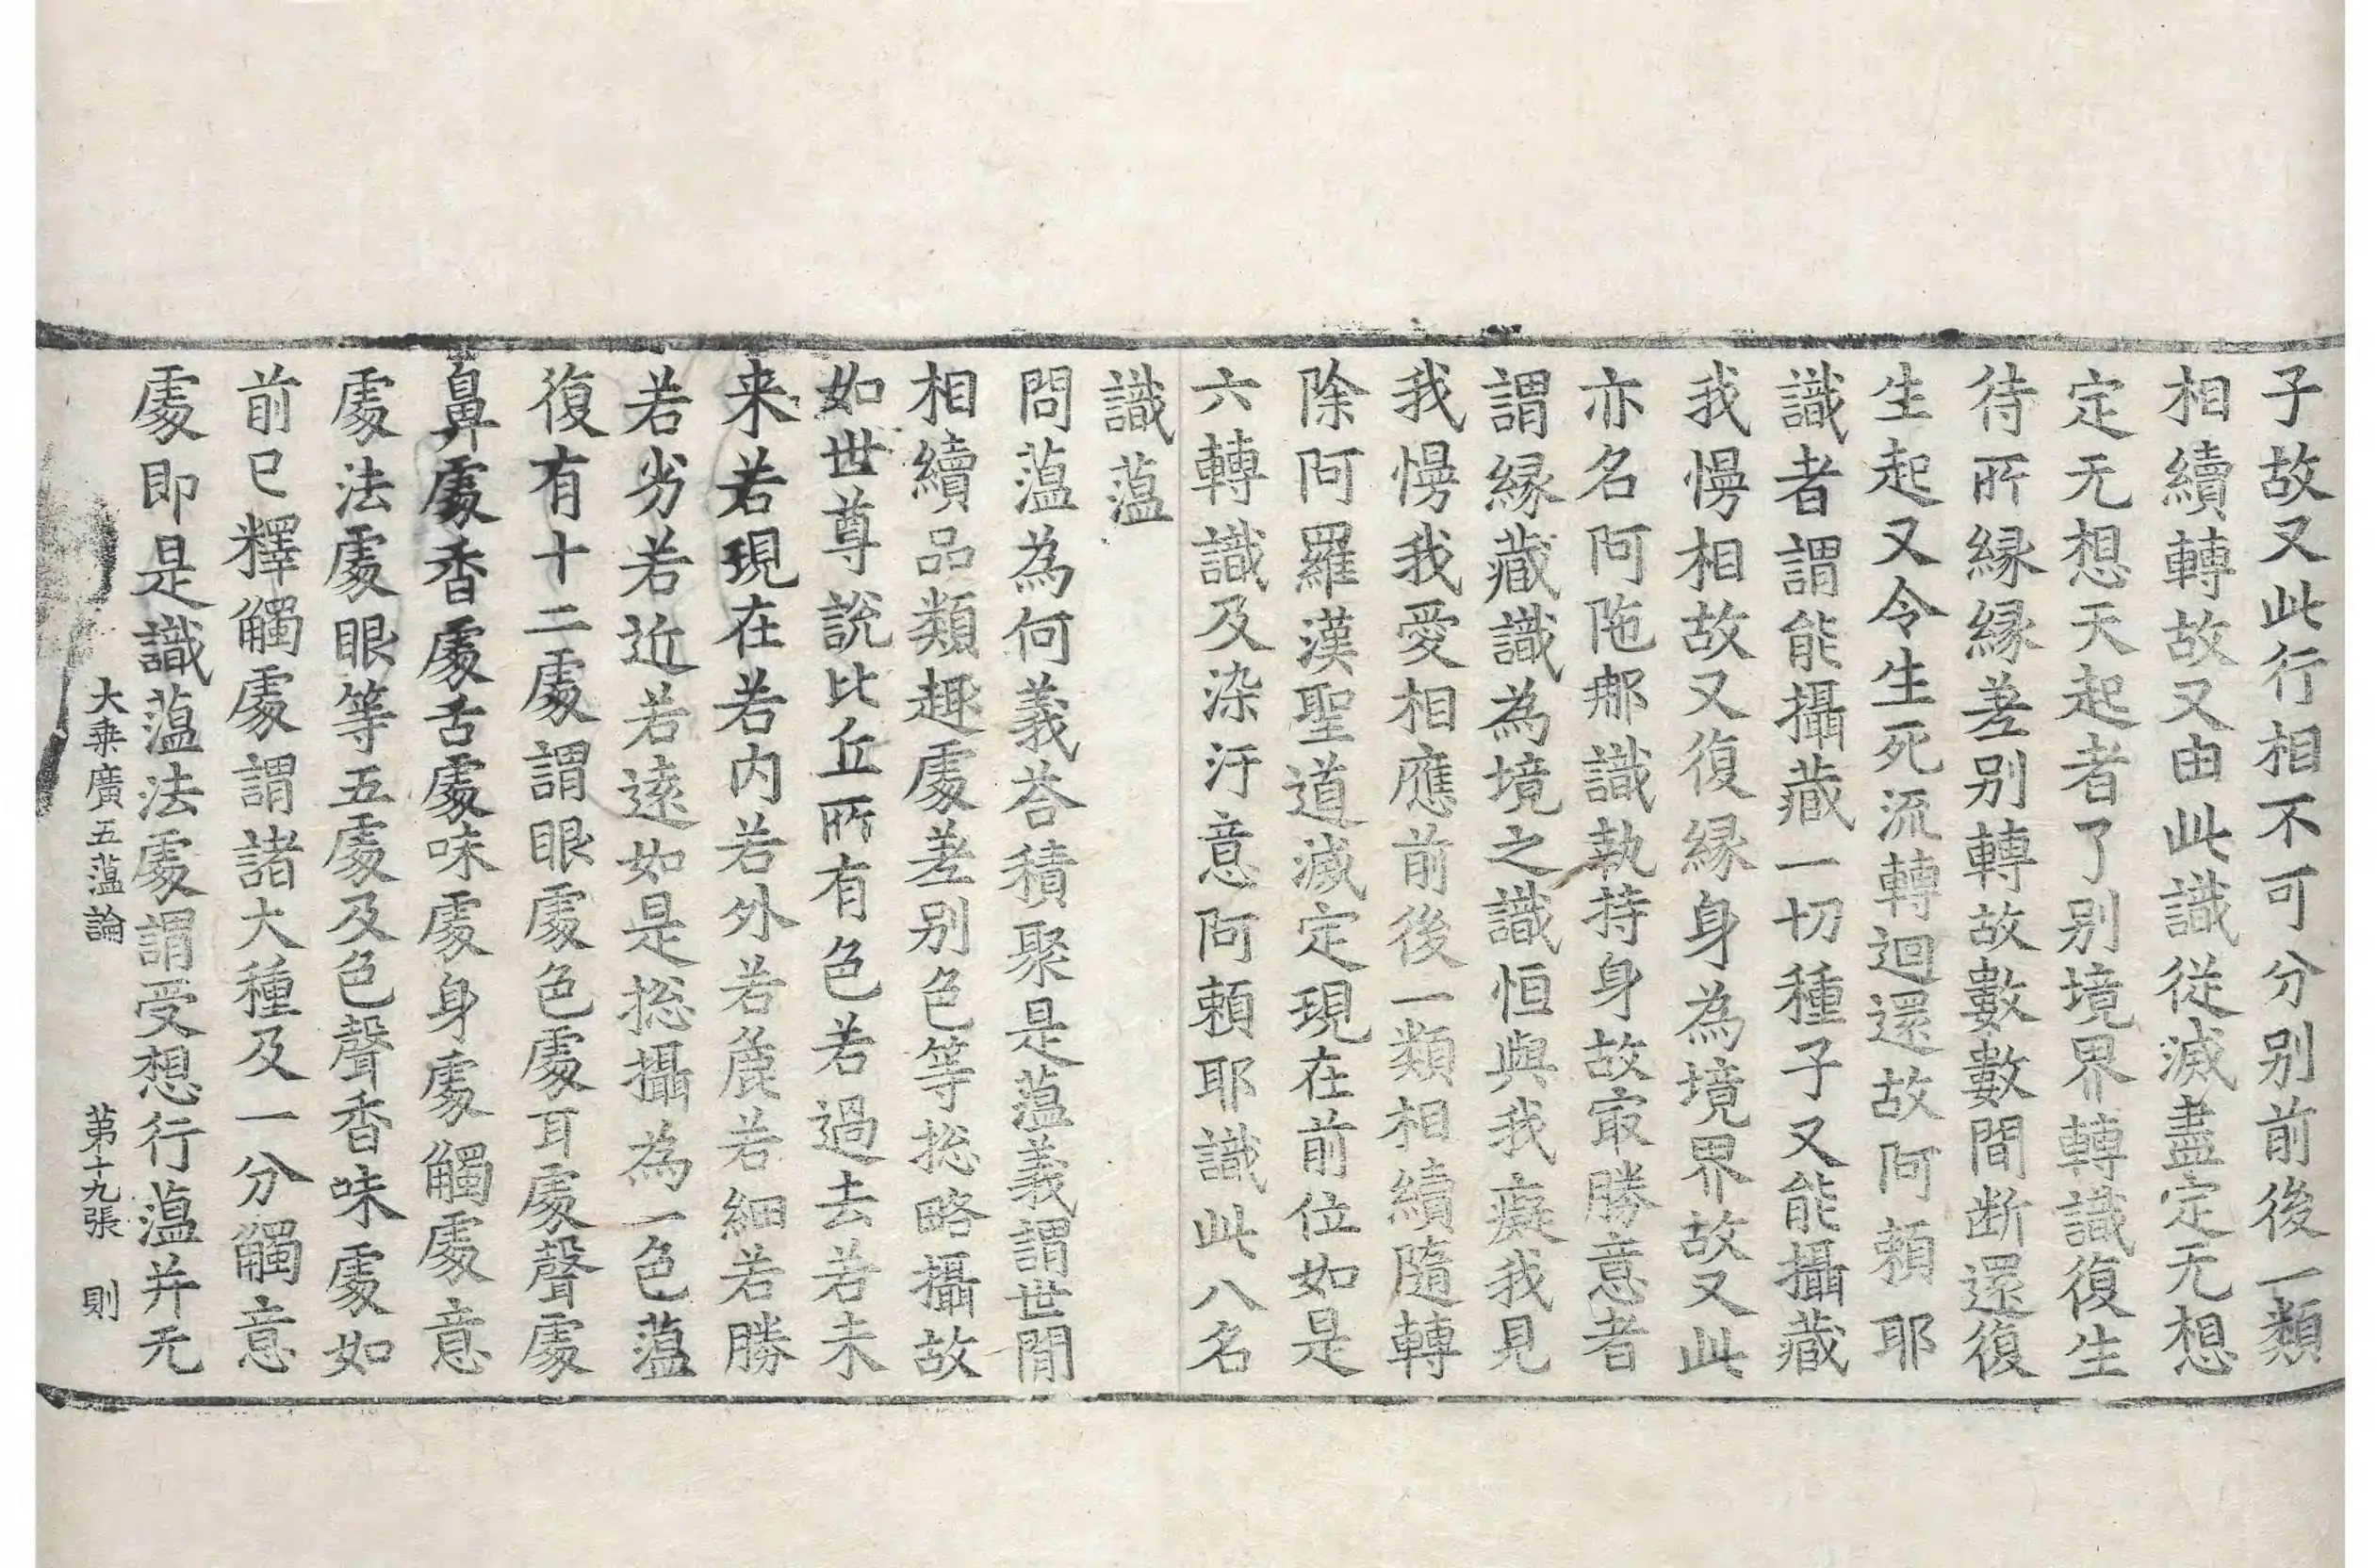 子故又此行相不可分别前後一類
相續轉故又由此識從滅盡定无想
定无想天起者了别境界轉識復生
待所緣緣差别轉故數數間断還復
生起又令生死流轉迴還故阿頼耶
識者謂能攝藏一切種子又能攝藏
我慢相故又復緣身為境界故又此
亦名阿陁那識執持身故㝡勝意者
謂緣藏識為境之識恒與我癡我見
我慢我愛相應前後一類相續隨轉
除阿羅漢聖道滅定現在前位如是
六轉識及染汙意阿頼耶識此八名
識薀
問薀為何義荅積聚是薀義謂世間
相續品類趣處差别色等揔略攝故
如世尊說比丘所有色若過去若未
来若現在若内若外若麁若細若勝
若劣若近若逺如是揔攝為一色薀
復有十二處謂眼處色處耳處聲處
鼻處香處舌處味處身處觸處意
處法處眼等五處及色聲香味處如
前已釋觸處謂諸大種及一分觸意
處即是識薀法處謂受想行薀并无
大乗廣五薀論 第十九張 則